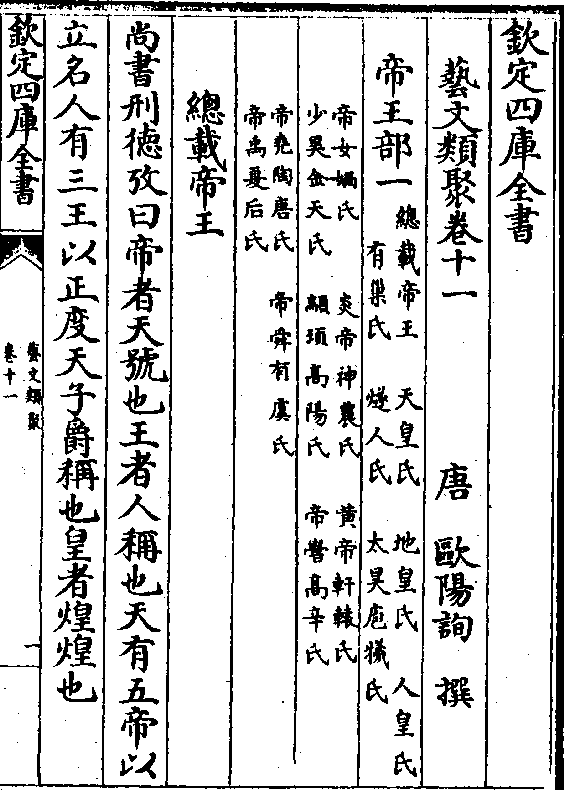 欽定四庫全書
藝文類聚卷十一
唐 歐陽詢 撰
帝王部一
總載帝王 天皇氏 地皇氏 人皇氏
有巢氏 燧人氏 太昊庖犧氏
帝女媧氏 炎帝神農氏 黃帝軒轅氏
少昊金天氏 顓頊高陽氏 帝嚳高辛氏
帝堯陶唐氏 帝舜有虞氏
帝禹夏后氏
總載帝王
尚書刑德攷曰帝者天號也王者人稱也天有五帝以
立名人有三王以正度天子爵稱也皇者煌煌也
欽定四庫全書
藝文類聚
卷十一
一